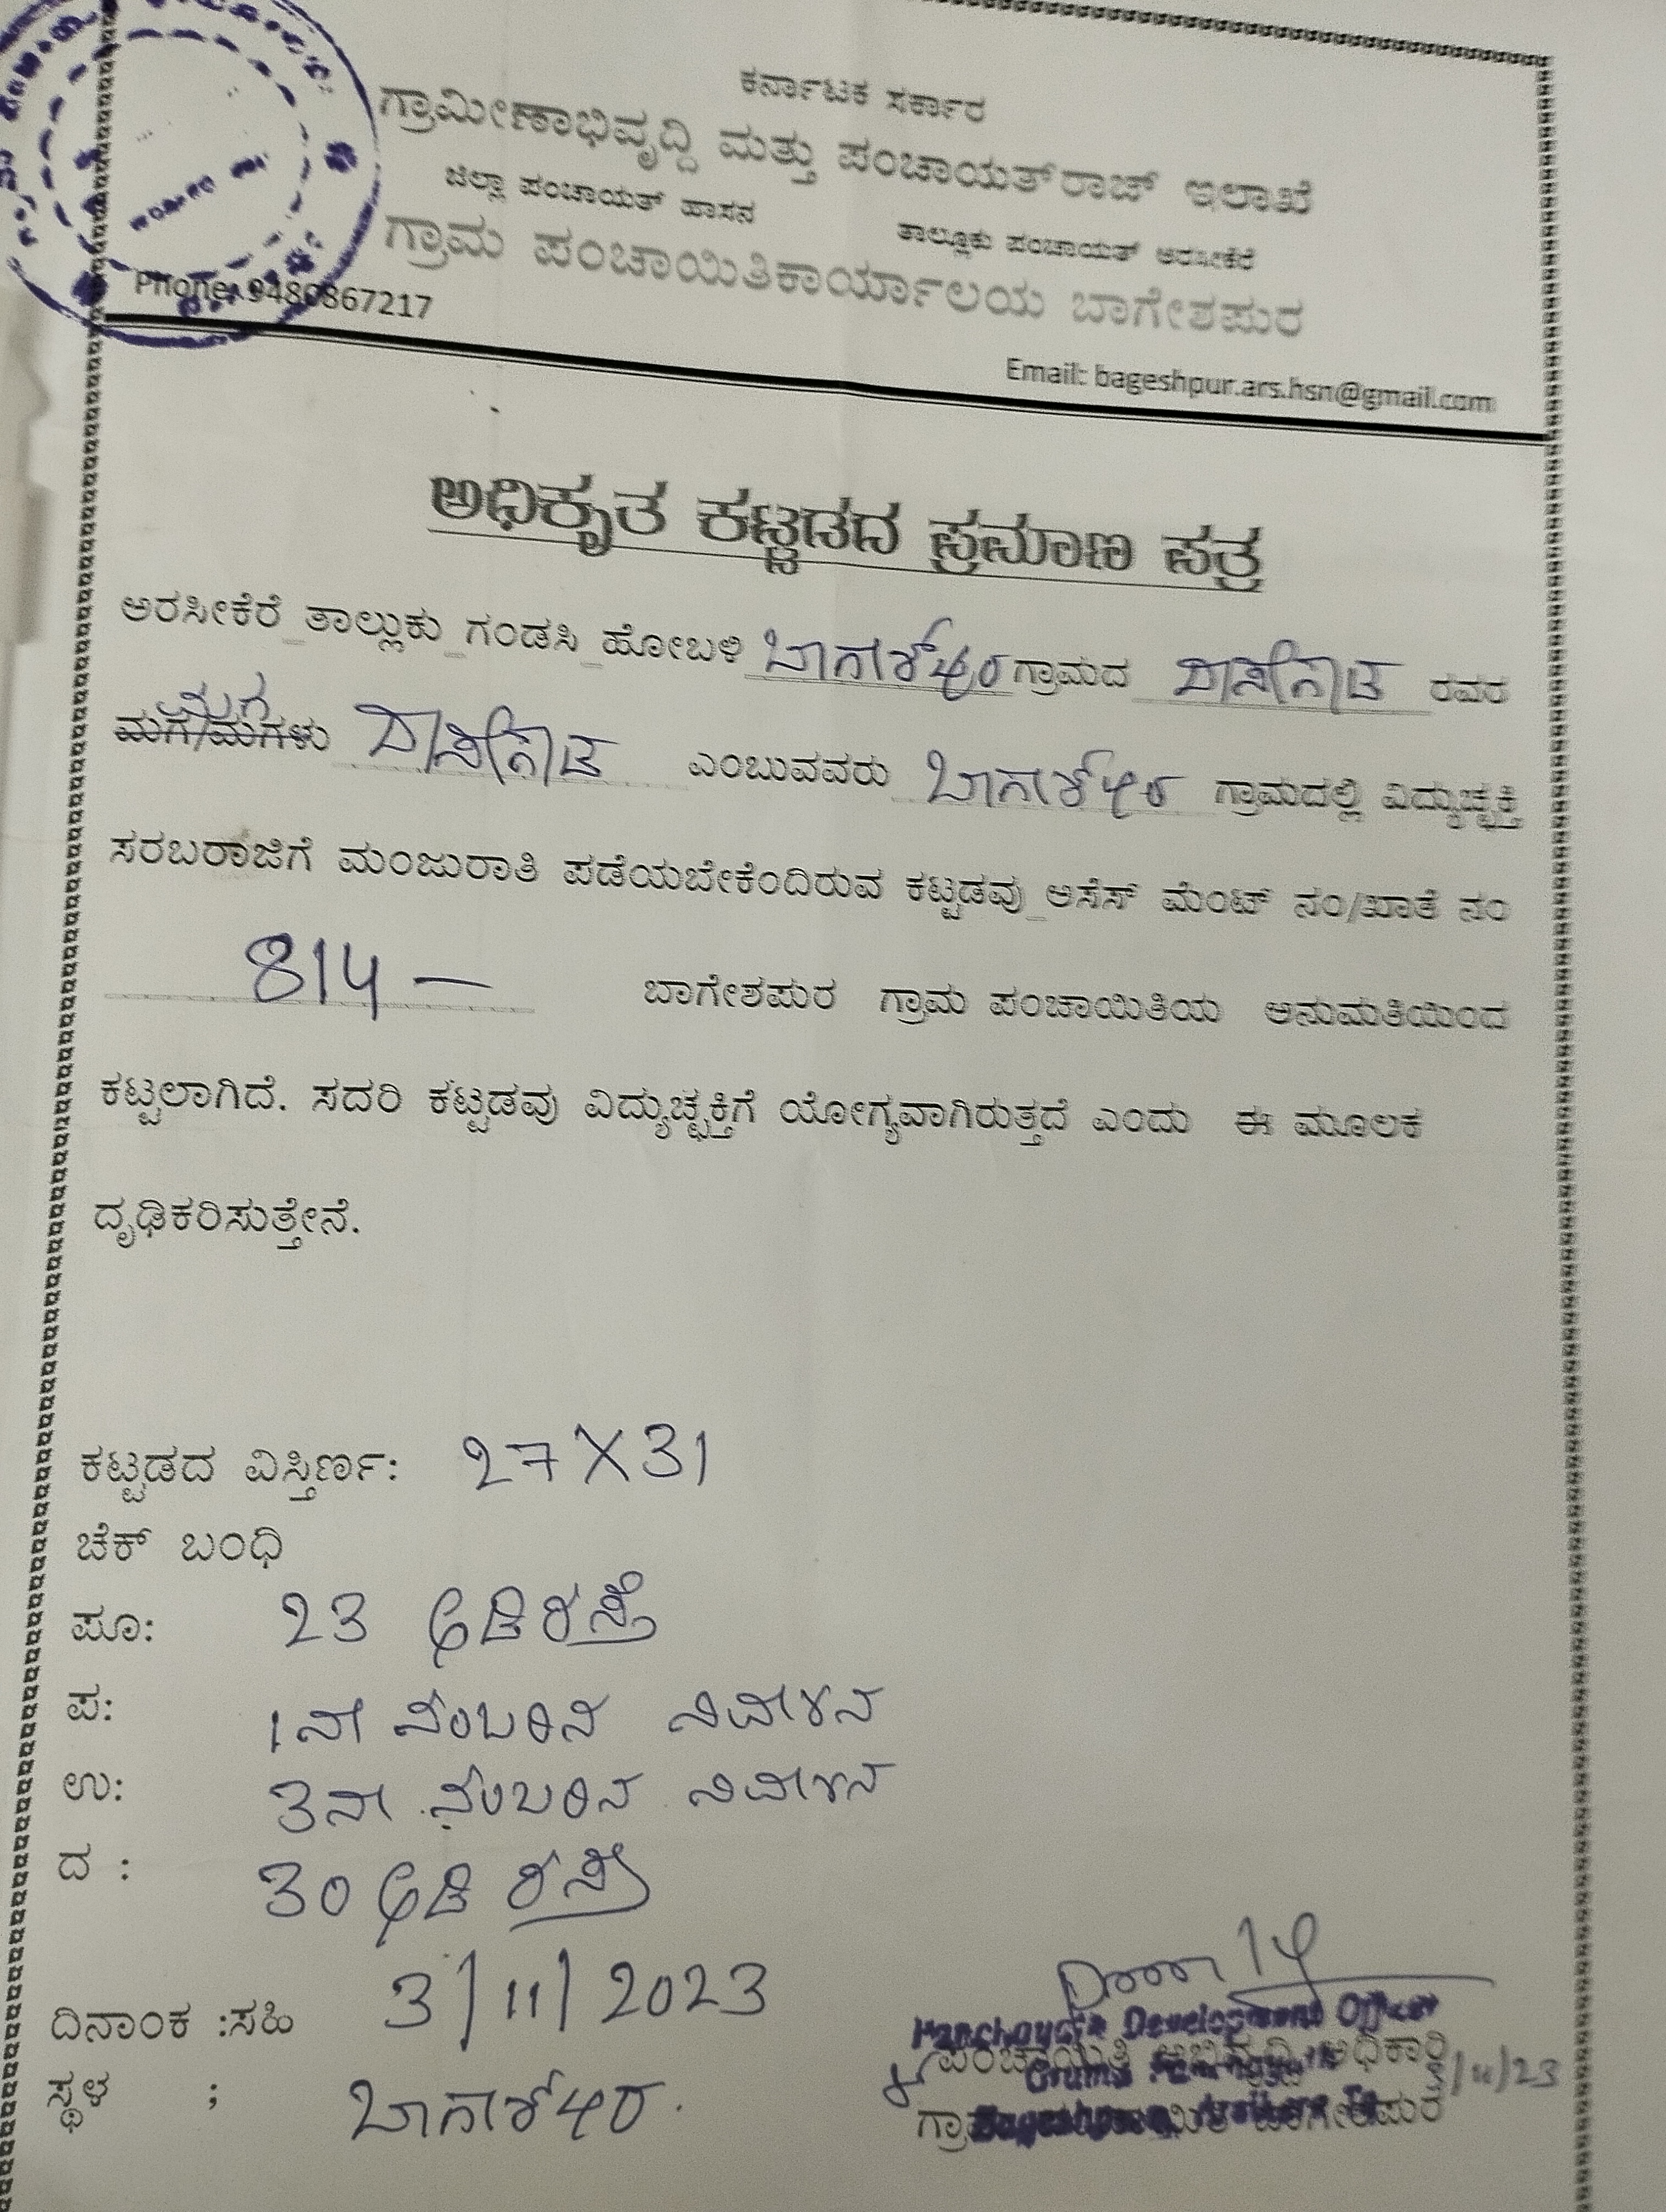 ಕರ್ನಾಟಕ ಸರ್ಕಾರ
ಗ್ರಾಮೀಣಾಭಿವೃದ್ದಿ ಮತ್ತು ಪಂಚಾಯತ್‌ರಾಜ್ ಇಲಾಖೆ
ಜಿಲ್ಲಾ ಪಂಚಾಯತ್ ಹಾಸನ ತಾಲ್ಲೂಕು ಪಂಚಾಯತ್ ಅರಸೀಕೆರೆ
ಗ್ರಾಮ ಪಂಚಾಯಿತಿಕಾರ್ಯಾಲಯ ಬಾಗೇಶಪುರ
Phone: 9480867217
Email: bageshpur.ars.hsn@gmail.com
ಅಧಿಕೃತ ಕಟ್ಟಡದ ಪ್ರಮಾಣ ಪತ್ರ
ಅರಸೀಕೆರೆ ತಾಲ್ಲುಕು ಗಂಡಸಿ ಹೋಬಳಿ ಬಾಗೇಶ್ಪುರ ಗ್ರಾಮದ ರವರ
ಮಗ
ಮಗ/ಮಗಳು ಎಂಬುವವರು ಬಾಗೇಶ್ಪುರ ಗ್ರಾಮದಲ್ಲಿ ವಿದ್ಯುಚ್ಛಕ್ತಿ
ಸರಬರಾಜಿಗೆ ಮಂಜುರಾತಿ ಪಡೆಯಬೇಕೆಂದಿರುವ ಕಟ್ಟಡವು ಅಸೆಸ್ ಮೆಂಟ್ ನಂ/ಖಾತೆ ನಂ
814 — ಬಾಗೇಶಪುರ ಗ್ರಾಮ ಪಂಚಾಯಿತಿಯ ಅನುಮತಿಯಿಂದ
ಕಟ್ಟಲಾಗಿದೆ. ಸದರಿ ಕಟ್ಟಡವು ವಿದ್ಯುಚ್ಛಕ್ತಿಗೆ ಯೋಗ್ಯವಾಗಿರುತ್ತದೆ ಎಂದು ಈ ಮೂಲಕ
ದೃಢಿಕರಿಸುತ್ತೇನೆ.
ಕಟ್ಟಡದ ವಿಸ್ತಿರ್ಣ: 27 X 31
ಚೆಕ್ ಬಂಧಿ
ಪೂ: 23 ಅಡಿ ರಸ್ತೆ
ಪ: 1ನೇ ನಂಬರಿನ ನಿವೇಶನ
ಉ: 3ನೇ ನಂಬರಿನ ನಿವೇಶನ
ದ : 30 ಅಡಿ ರಸ್ತೆ
ದಿನಾಂಕ :ಸಹಿ 3/11/2023
Panchayath Development Officer
ಪಂಚಾಯಿತಿ ಅಭಿವೃದ್ಧಿ ಅಧಿಕಾರಿ
3/11/23
ಸ್ಥಳ ; ಬಾಗೇಶ್ಪುರ.